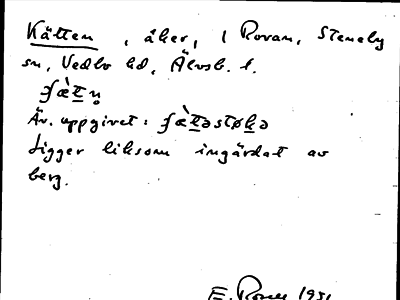 Kätten, åker, i Rovan, Steneby
sn, Vedbo hd, Älvsb. l.
ʃæ̀tn̥
Äv. uppgivet: ʃæ̀təstøkə
Ligger liksom ingärdat av
berg.
E. 1951